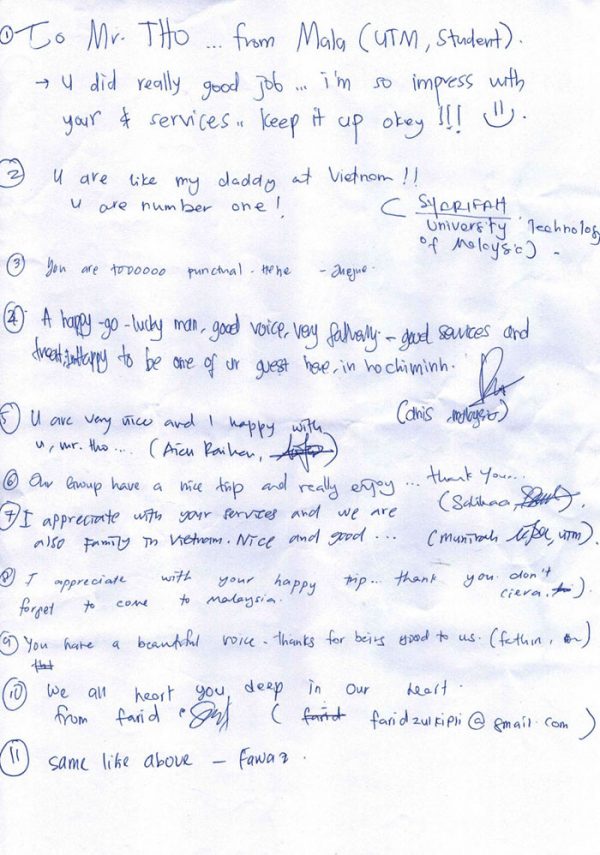 ① To Mr. THO ... from Mala (UTM, Student).
→ u did really good job ... i'm so impress with
your & services.. keep it up okey !!!
② u are like my daddy at Vietnam !!
u are number one !
( SYARIFAH
University Technology
of Malaysia) -
③ You are tooooooo punctual. hehe -
④ A happy-go-lucky man, good voice, very - good services and
happy to be one of ur guest here, in hochiminh.
( malaysia)
⑤ U are very nice and I happy with
u, mr. tho ... (
⑥ Our Group have a nice trip and really enjoy ... thank you...
⑦ I appreciate with your services and we are
also family in Vietnam. Nice and good ... (Munirah UTM)
⑧ I appreciate with your happy trip... thank you. don't
forget to come to malaysia. ciera. ).
⑨ You have a beautiful voice - thanks for being good to us. (fathin, )
⑩ We all heart you deep in our heart.
from farid ( farid faridzulkipli@gmail.com )
⑪ same like above - Fawaz.